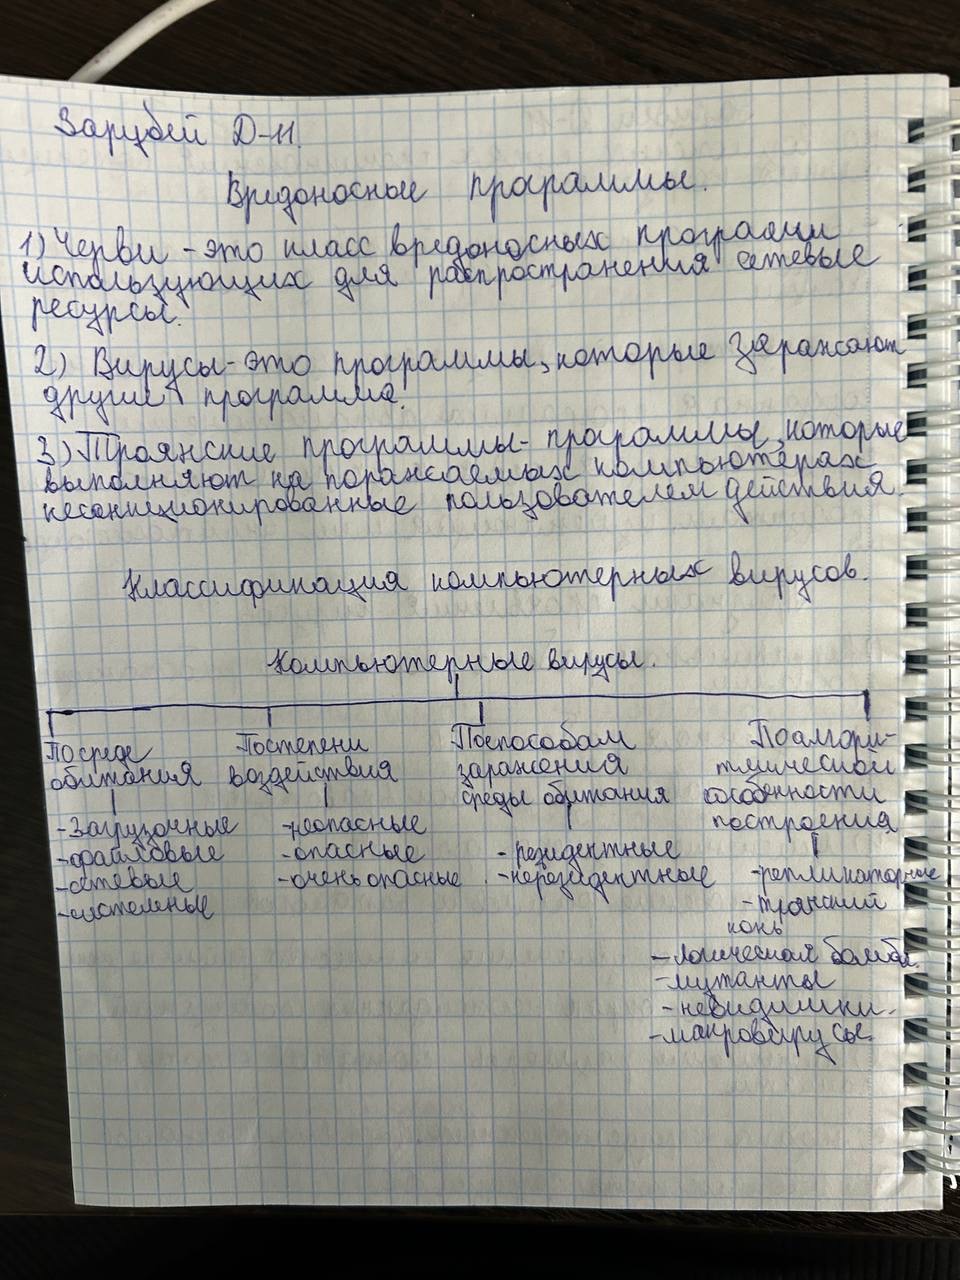 Зарубей Д-11.
Вредоносные программы.
1) Черви - это класс вредоносных программ
использующих для распространения сетевые
ресурсы.
2) Вирусы - это программы, которые заражают
другие программы.
3) Троянские программы - программы, которые
выполняют на поражаемых компьютерах
несанкционированные пользователем действия.
Классификация компьютерных вирусов.
Компьютерные вирусы.
По среде
обитания
- загрузочные
- файловые
- сетевые
- системные
По степени
воздействия
- неопасные
- опасные
- очень опасные
По способам
заражения
среды обитания
- резидентные
- нерезидентные
По алгори-
тмической
особенности
построения
- репликаторные
- троянский
конь
- логическая бомба.
- мутанты
- невидимки.
- макровирусы.